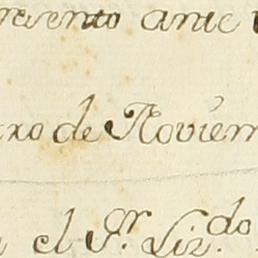 resento ante
ro de Noviem
el Sr. Liz.do